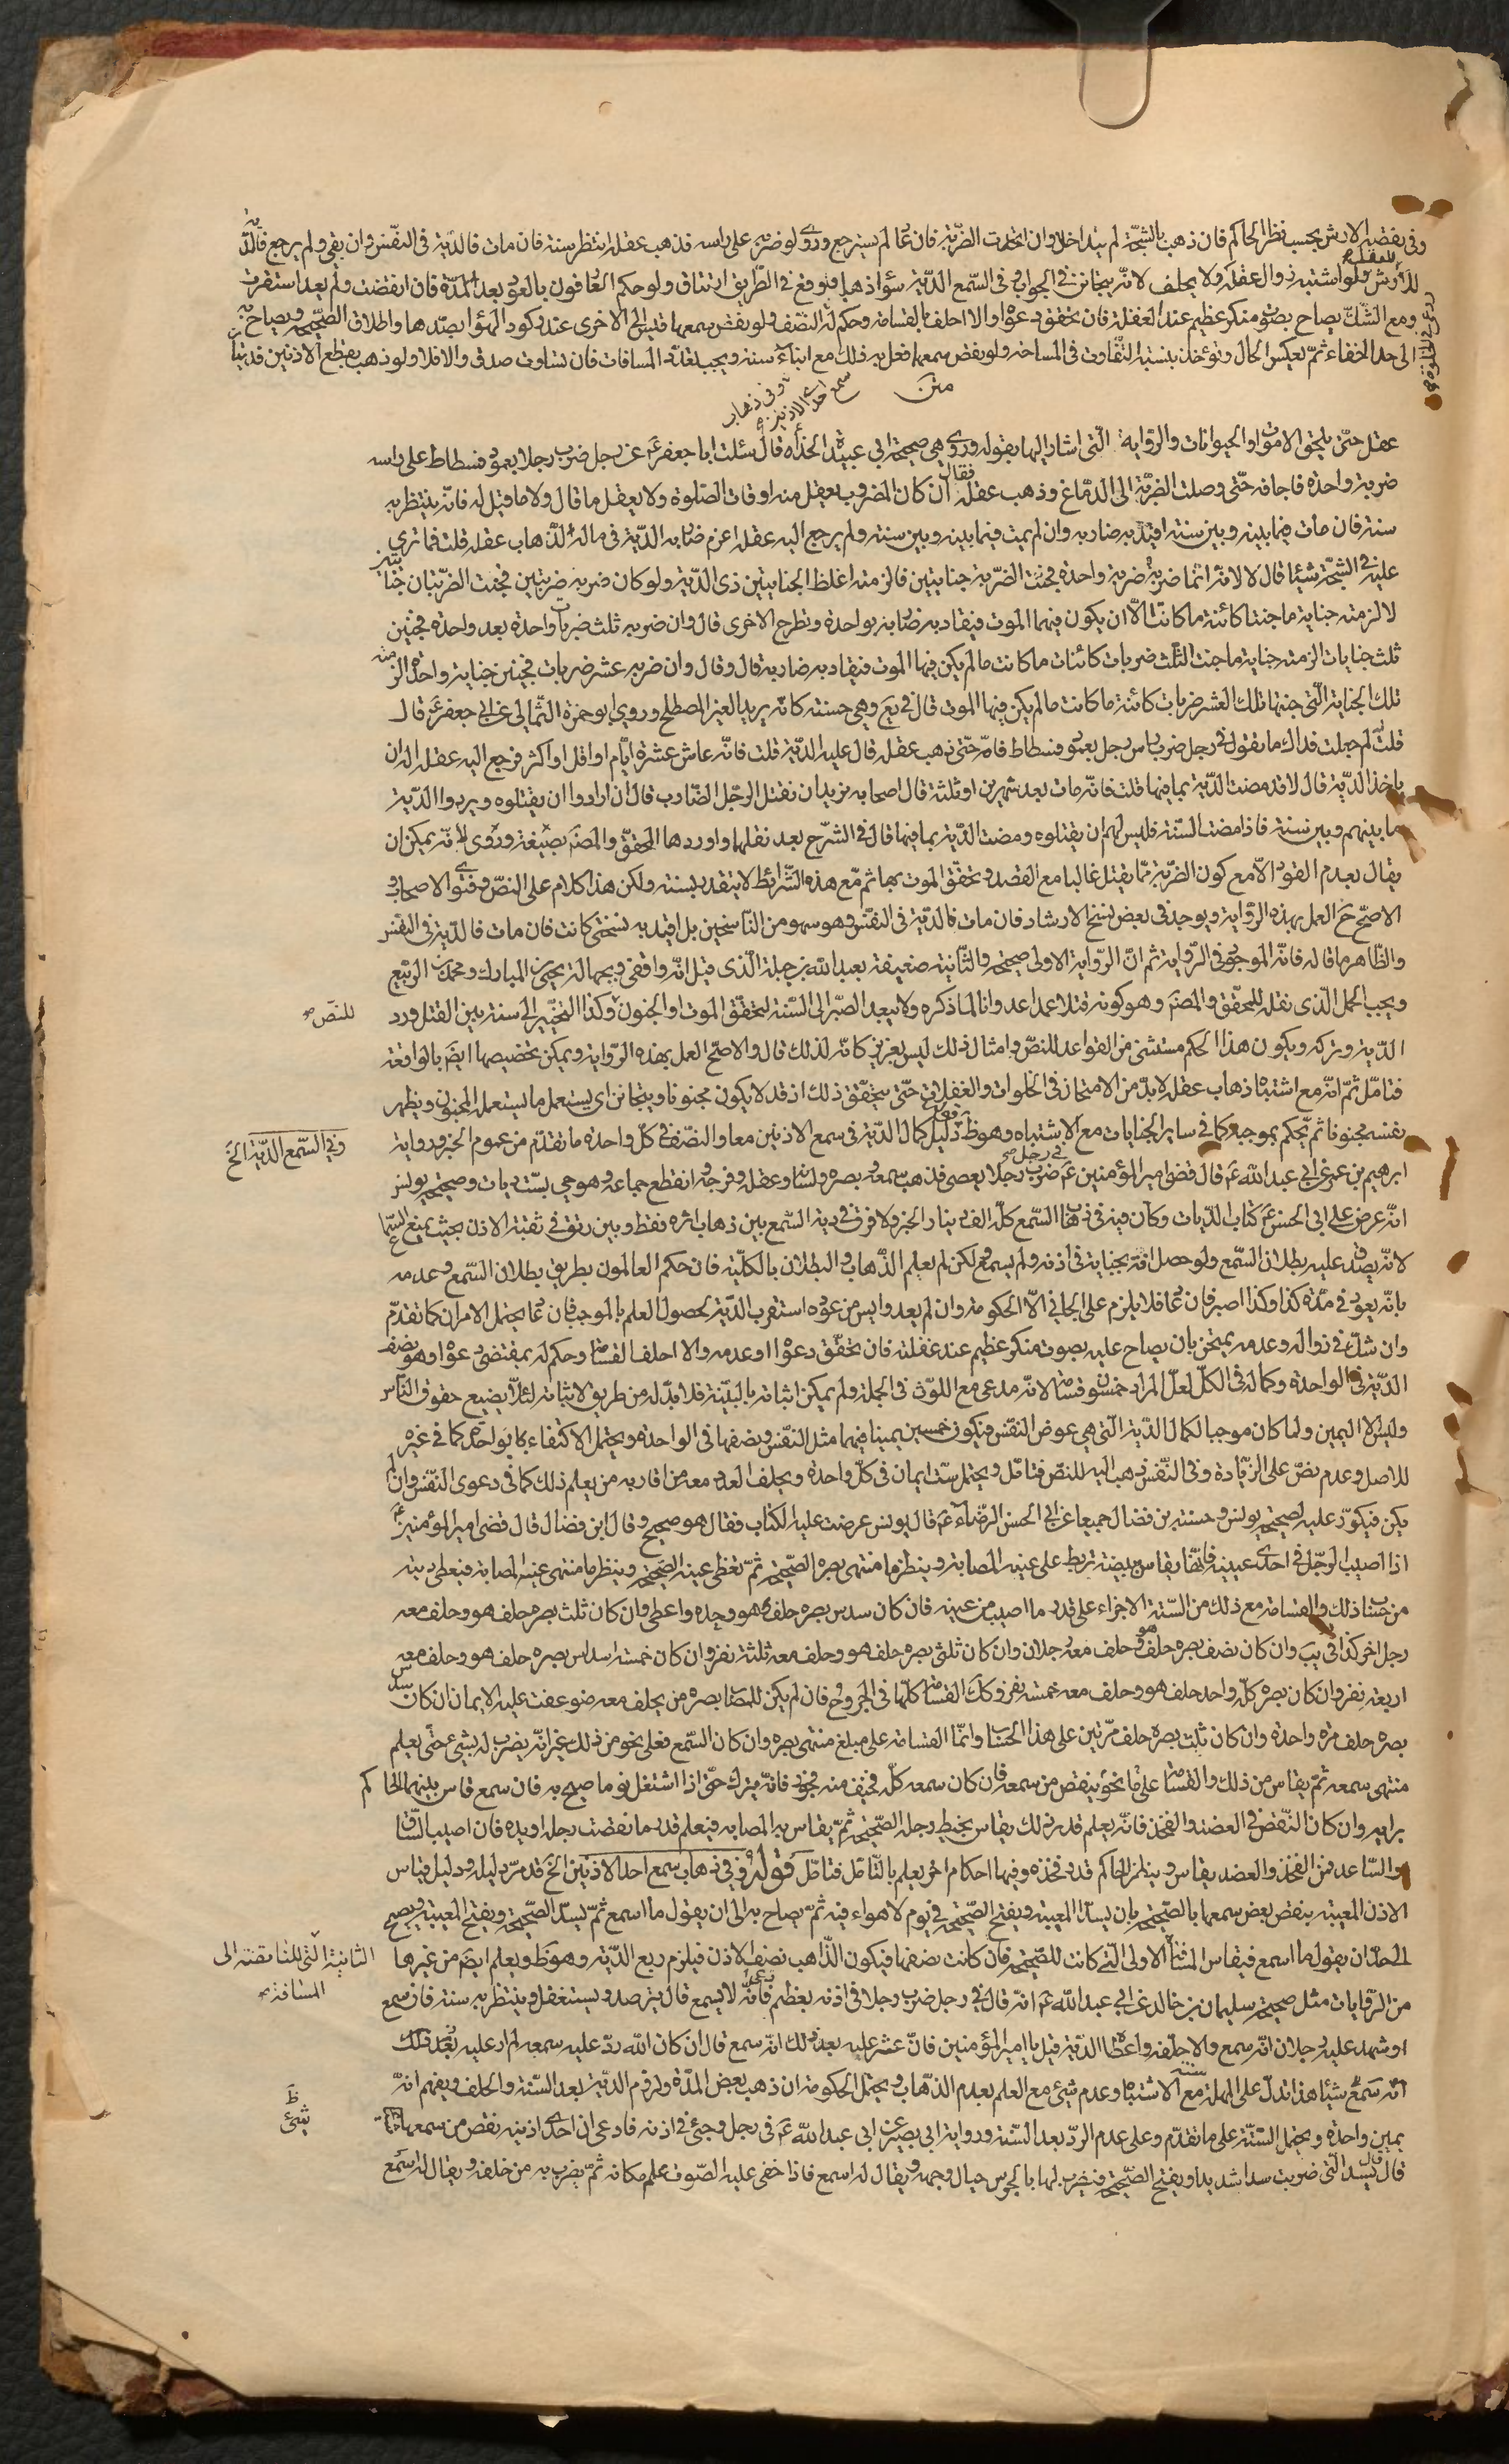 وفى نقصه الارش بحسب نظر الحاكم فان ذهب بالشجّة لم يتداخل وان اتحدت الضربة فان عاد لم يسترجع وروى لو ضربه على راسه فذهب عقله انتظر سنة فان مات فالدّية فى النفس وان بقى ولم يرجع فالدّية
للارش ولو اشتبه زوال العقل ولا يحلف لانّه يتجانن فى الجواب وفى السّمع الدّية سواء ذهب او وقع فى الطّريق ارتتاق ولو حكم العارفون بالعود بعد المدّة فان انقضت ولم يعد استقرت
ومع الشّكّ يصاح بصوت منكر عظيم عند الغفلة فان تحقق دعواه والا احلف بالقسامة وحكم له وفى النصف ولو نقص سمعهما قيس الى الاخرى عند ركود الهواء بسدّها واطلاق الصّحيحة ويصاح به
الى حد الخفاء ثمّ يعكس الحال ويؤخذ بنسبة التّفاوت فى المساحة ولو نقص سمعهما فعل به ذلك مع ابناء سنه ويجب تعدّد المسافات فان تساوت صدق والا فلا ولو ذهب بقطع الاذنين فديتان
متن
وفى ذهاب
سمع احدى الاذنين
عقل حتى يلحق الاموات او الحيوانات والرّواية الّتى اشار اليها بقوله وروى هى صحيحة ابى عبيدة الحذاء قال سئلت ابا جعفر ع عن رجل ضرب رجلا بعمود فسطاط على راسه
ضربة واحدة فاجافه حتّى وصلت الضربة الى الدّماغ وذهب عقله فقال ان كان المضروب لا يعقل منه اوقات الصّلوة ولا يعقل ما قال ولا ما قيل له فانّه ينتظر به
سنة فان مات فيما بينه وبين سنة اقيد به ضاربه وان لم يمت فيما بينه وبين سنة ولم يرجع اليه عقله اغرم ضاربه الدّية فى ماله لذهاب عقله قلت فما ترى
عليه فى الشجّة شيئا قال لا لانّه انّما ضربه ضربة واحدة فجنت الضّربة جنايتين فالزمته اغلظ الجنايتين وهى الدّية ولو كان ضربه ضربتين فجنت الضربتان جنايتين
لالزمته جناية ما جنتا كائنة ما كانت الّا ان يكون فيهما الموت فيقاد به ضاربه بواحدة وتطرح الاخرى قال وان ضربه ثلث ضربات واحدة بعد واحدة فجنين
ثلث جنايات الزمته جناية ما جنت الثّلث ضربات كائنات ما كانت ما لم يكن فيها الموت فيقاد به ضاربه قال وقال وان ضربه عشر ضربات فجنين جناية واحدة الزمته
تلك الجناية الّتى جنتها تلك العشر ضربات كائنة ما كانت ما لم يكن فيها الموت قال فى يع وهى حسنة كانّه يريد الغير المصطلح وروى ابو حمزة الثمالى عن ابى جعفر ع قال
قلت له جعلت فداك ما تقول فى رجل ضرب راس رجل بعمود فسطاط فامّه حتّى ذهب عقله قال عليه الدّية قلت فانّه عاش عشرة ايّام او اقل او اكثر فرجع اليه عقله اله ان
ياخذ الدّية قال لا قد مضت الدّية بما فيها قلت فانّه مات بعد شهرين او ثلثة قال اصحابه نريد ان نقتل الرجل الضّارب قال ان ارادوا ان يقتلوه ويردوا الدّية
ما بينهم وبين سنة فاذا مضت السّنة فليس لهم ان يقتلوه ومضت الدّية بما فيها قال فى الشّرح بعد نقلهما واوردها المحقّق والمصنّف بصيغة وروى لانّه يمكن ان
يقال بعدم القود الّا مع كون الضربة ممّا يقتل غالبا مع القصد وتحقّق الموت بها ثم مع هذه الشّرائط لا يتقدر بسنة ولكن هذا كلام على النصّ وفتوى الاصحاب و
الاصحّ ح العمل بهذه الرّواية ويوجد فى بعض نسخ الارشاد فان مات فالدّية فى النفس وهو سهو من النّاسخين بل اقيد به نسختى كانت فان مات فالدّية فى النفس
والظّاهر ما قاله فانّه الموجود فى الرّواية ثم انّ الرّواية الاولى صحيحة والثّانية ضعيفة بعبد اللّه بن جبلة الّذى قيل انّه واقفى وبجهالة يحيى بن المبارك ومحمد بن الربيع
ويجب الحمل الّذى نقله للمحقّق والمصنّف وهو كونه قتلا عمدا عدوانا لما ذكره ولا يبعد الصّبر الى السّنة لتحقّق الموت او الجنون وكذا التّخيير الى سنة بين القتل ورد
للنصّ صح
الدّية وتركه ويكون هذا الحكم مستثنى من القواعد للنصّ وامثال ذلك ليس بعزيز كانّه لذلك قال والاصحّ العمل بهذه الرّواية ويمكن تخصيصها ايضا بالواقعة
فتامّل ثمّ انّه مع اشتباه ذهاب عقله لا بدّ من الامتحان فى الخلوات والغفلات حتّى يتحقّق ذلك اذ قد لا يكون مجنونا ويتجانن اى يستعمل ما يستعمله المجنون ويظهر
نفسه مجنونا ثم يحكم بموجبه كما فى ساير الجنايات مع الاشتباه وهو ظ دليل كمال الدّية فى سمع الاذنين معا والنّصف فى كلّ واحدة ما تقدّم من عموم الخبر ورواية
وفى السّمع الدّية الخ
ابرهيم بن عمر عن ابى عبد اللّه ع قال قضى امير المؤمنين ع فى رجل ضرب رجلا بعصى فذهب سمعه وبصره ولسانه وعقله وفرجه وانقطع جماعه وهو حى بستّ ديات وصحيحة يونس
انّه عرض على ابى الحسن ع كتاب الدّيات وكان فيه فى ذهاب السّمع كلّه الف دينار الخبر ولا فرق فى دية السّمع بين ذهاب اثره فقط وبين رتق فى ثقبة الاذن بحيث يمنع السّماع
لانّه يصدق عليه بطلان السّمع ولو حصل افة بجناية فى اذنه ولم يسمع لكن لم يعلم الذّهاب والبطلان بالكلّية فان حكم العالمون بطريق بطلان السّمع وعدمه
بانّه يعود فى مدّة كذا وكذا اصبر فان عاد فلا يلزم على الجانى الّا الحكومة وان لم يعد وايس من عوده استقرت الدّية لحصول العلم بالموجب فان عاد يحتمل الامران كما تقدّم
وان شكّ فى زواله وعدمه يمتحن بان يصاح عليه بصوت منكر عظيم عند غفلته فان تحقّق دعواه او عدمه والا احلف القسامة وحكم له بمقتضى دعواه وهو نصف
الدّية فى الواحدة وكماله فى الكلّ لعلّ المراد خمسون قسامة لانّه مدعى مع اللوث فى الجملة ولم يمكن اثباته بالبيّنة فلا بدّ له من طريق لاثباته لئلّا يضيع حقوق النّاس
وليس الا اليمين ولما كان موجبا لكمال الدّية الّتى هى عوض النفس فيكون خمسين يمينا فيهما مثل النّفس ونصفها فى الواحدة ويحتمل الاكتفاء بالواحدة كما فى غيره
للاصل وعدم نصّ على الزّيادة وفى النّفس ذهب اليه للنصّ فتامّل ويحتمل ستّ ايمان فى كلّ واحدة ويحلف العدد معه من اقاربه من يعلم ذلك كما فى دعوى النفس وان لم
يكن فيكرّر عليه لصحيحة يونس وحسنة ابن فضال جميعا عن ابى الحسن الرّضا ع قال يونس عرضت عليه الكتاب فقال هو صحيح وقال ابن فضال قال قضى امير المؤمنين ع
اذا اصيب الرّجل فى احدى عينيه فانّها يقاس ببيضة تربط على عينه المصابة وينظر ما منتهى بصره الصّحيحة ثمّ تغطى عينه الصّحيحة وينظر ما منتهى عينه المصابة فيعطى ديته
من حساب ذلك والقسامة مع ذلك من السّتة الاجزاء على قدر ما اصيب من عينه فان كان سدس بصره حلف هو وحده واعطى وان كان ثلث بصره حلف هو وحلف معه
رجل اخر كذا فى يب وان كان نصف بصره حلف هو وحلف معه رجلان وان كان ثلثى بصره حلف هو وحلف معه ثلثة نفر وان كان خمسة اسداس بصره حلف هو وحلف معه
اربعة نفر وان كان بصره كلّه واحد حلف هو وحلف معه خمسة نفر وكك القسامة كلّها فى الجروح فان لم يكن للمصاب بصره من يحلف معه ضوعفت عليه الايمان ان كان سدس
بصره حلف مرة واحدة وان كان ثلث بصره حلف مرّتين على هذا الحساب وانّما القسامة على مبلغ منتهى بصره وان كان السّمع فعلى نحو من ذلك غير انّه يضرب له بشىء حتّى يعلم
منتهى سمعه ثمّ يقاس من ذلك والقسامة على نحو ما ينقص من سمعه فان كان سمعه كلّه فخيف منه فجور فانّه يترك حتّى اذا اشتغل نوما صيح به فان سمع قاس بينهم الحاكم
برايه وان كان النّقص فى العضد والفخذ فانّه يعلم قدر ذلك يقاس بخيط رجله الصّحيحة ثمّ يقاس به المصابه فيعلم قدر ما نقصت رجله او يده فان اصيب السّاق
والسّاعد فمن الفخذ والعضد يقاس وينظر الحاكم قدر فخذه وفيها احكام اخر يعلم بالتّامّل فتامّل قوله وفى ذهاب سمع احد الاذنين الخ قد مرّ دليله ودليل قياس
الاذن المعيبة بنقص بعض سمعها بالصّحيحة بان يسدّ المعيبة ويفتح الصّحيحة فى يوم لا هواء فيه ثمّ يصاح به الى ان يقول ما اسمع ثمّ يسدّ الصّحيحة ويفتح المعيبة ويصيح
الى حدّ ان يقول ما اسمع فيقاس المسافة الاولى الّتى كانت للصّحيحة فان كانت نصفها فيكون الذّاهب نصف الاذن فيلزم ربع الدّية وهو ظ ويعلم ايضا من غيرها
الثانية الّتى للناقصة الى
المسافة صح
من الرّوايات مثل صحيحة سليمان بن خالد عن ابى عبد اللّه ع انّه قال فى رجل ضرب رجلا فى اذنه بعظم فادّعى انّه لا يسمع قال يترصد ويستغفل وينتظر به سنة فان سمع
او شهد عليه رجلان انّه سمع والا حلّفه واعطاه الدّية قيل يا امير المؤمنين فانّ عثر عليه بعد ذلك انّه سمع قال ان كان اللّه ردّ عليه سمعه لم ار عليه بعد ذلك
انّه سمع شيئا هذا تدلّ على المهلة سنة مع الاشتباه وعدم شىء مع العلم بعدم الذّهاب ويحتمل الحكومة ان ذهب بعض المدّة ولزوم الدّية بعد السّنة والحلف ويفهم انّه
شىء ظ
يمين واحدة ويحتمل السّتّة على ما تقدّم وعلى عدم الردّ بعد السّنة ورواية ابى بصير عن ابى عبد اللّه ع فى رجل وجئ فى اذنه فادعى ان احدى اذنيه نقص من سمعها
قال قال يسد الّتى ضربت سدا شديدا ويفتح الصّحيحة فيضرب لها بالجرس حيال وجهه ويقال له اسمع فاذا خفى عليه الصّوت علم مكانه ثمّ يضرب به من خلفه ويقال له اسمع